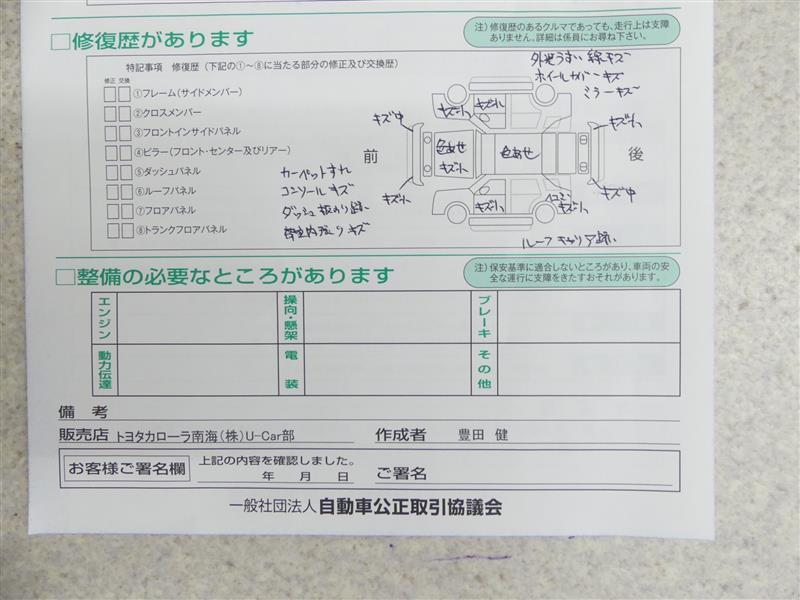 □修復歴があります
注）修復歴のあるクルマであっても、走行上は支障ありません。詳細は係員にお尋ね下さい。
特記事項 修復歴（下記の①～⑧に当たる部分の修正及び交換歴）
修正 交換
①フレーム（サイドメンバー）
②クロスメンバー
③フロントインサイドパネル
④ピラー（フロント・センター及びリアー）
⑤ダッシュパネル
⑥ルーフパネル
⑦フロアパネル
⑧トランクフロアパネル
カーペットすれ
コンソールキズ
ダッシュ
キズ
外装うすい線キズ
ホイールカバーキズ
ミラーキズ
前
後
キズ中
キズ小
キズ小
キズ小
色あせ
キズ小
色あせ
キズ小
キズ中
キズ小
キズ小
キズ小
ルーフキャリア
□整備の必要なところがあります
注）保安基準に適合しないところがあり、車両の安全な運行に支障をきたすおそれがあります。
エンジン
操向・懸架
ブレーキ
動力伝達
電装
その他
備考
販売店 トヨタカローラ南海（株）U-Car部
作成者 豊田 健
お客様ご署名欄
上記の内容を確認しました。
年 月 日
ご署名
一般社団法人 自動車公正取引協議会